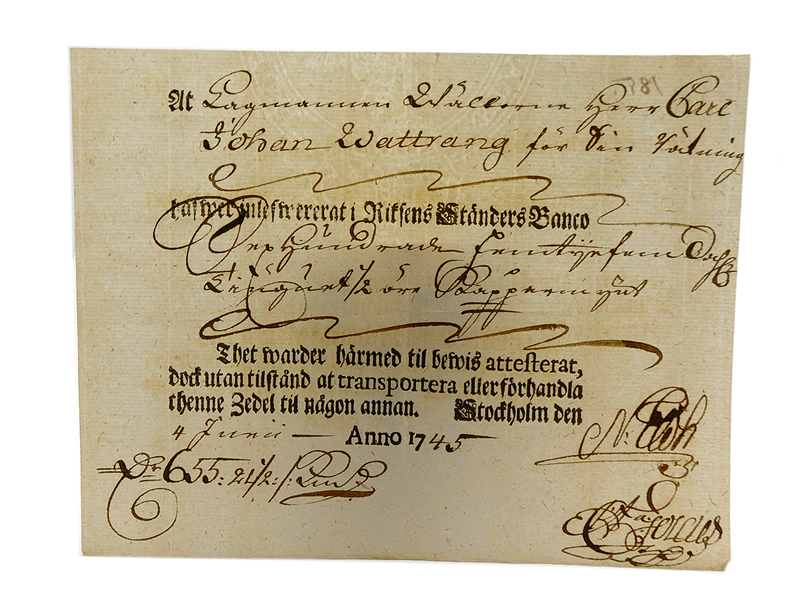 At Lagmannen Wällborne Herr Carl
Johan Wattrang för Sin Räkning
hafwer inlefwererat i Riksens Ständers Banco
Sex Hundrade femtijefem Dahl
Tiuguet 1/2 öre Koppermynt
Thet warder härmed til bewis attesterat,
dock utan tilstånd at transportera eller förhandla
thenne Zedel til någon annan. Stockholm den
4 Junii — Anno 1745
Dr 655: 21 1/2:
N: